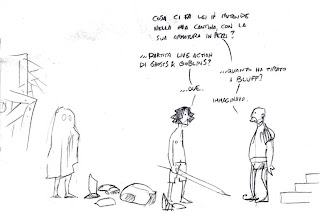 COSA CI FA LEI IN MUTANDE
NELLA MIA CANTINA CON LA
SUA ARMATURA IN PEZZI?
...PARTITA LIVE ACTION
DI GHOSTS & GOBLINS?
...QUANTO HA TIRATO
A BLUFF?
...DUE.
IMMAGINAVO.